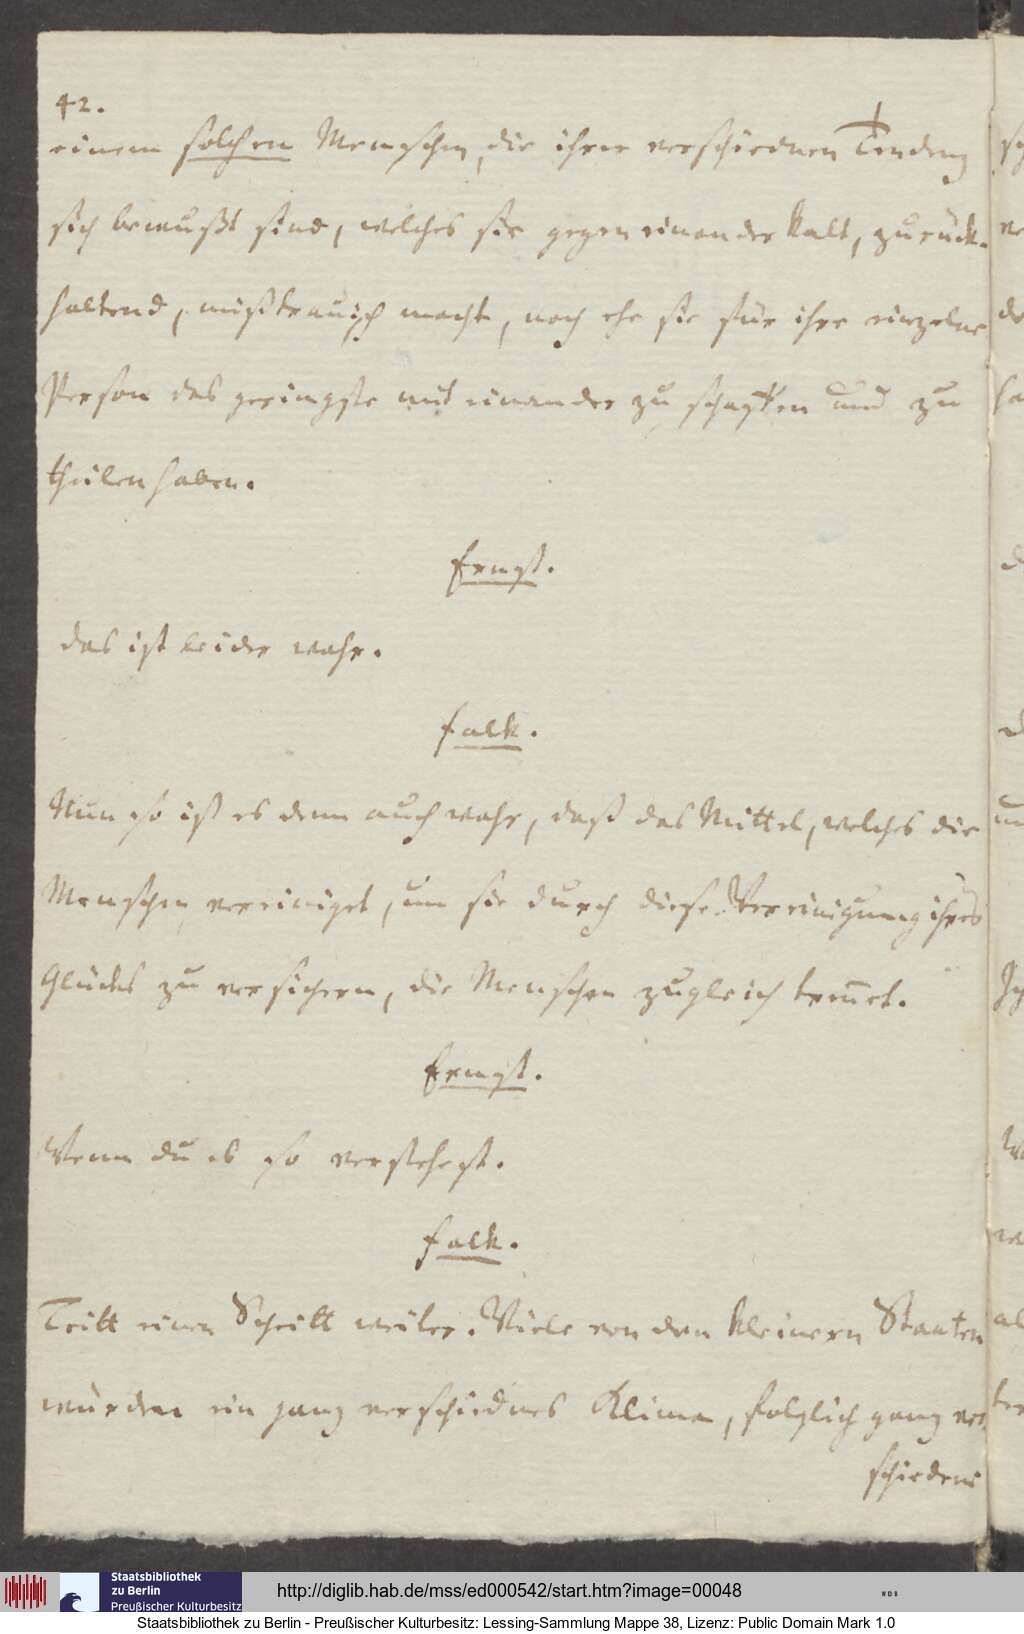 42.
einem solchen Menschen, die ihrer verschiednen Tendenz
sich bewußt sind, welches sie gegen einander kalt, zurück-
haltend, mißtrauisch macht, noch ehe sie für ihre einzelne
Person das geringste mit einander zu schaffen und zu
theilen haben.
Ernst.
das ist leider wahr.
Falk.
Nun so ist es denn auch wahr, daß das Mittel, welches die
Menschen vereiniget, um sie durch diese Vereinigung ihres
Glückes zu versichern, die Menschen zugleich trennet.
Ernst.
Wenn du es so verstehest.
Falk.
Tritt einen Schritt weiter. Viele von den kleinern Staaten
würden ein ganz verschiednes Klima, folglich ganz ver-
schiedene
Staatsbibliothek
zu Berlin
Preußischer Kulturbesitz
http://diglib.hab.de/mss/ed000542/start.htm?image=00048
WDB
Staatsbibliothek zu Berlin - Preußischer Kulturbesitz: Lessing-Sammlung Mappe 38, Lizenz: Public Domain Mark 1.0